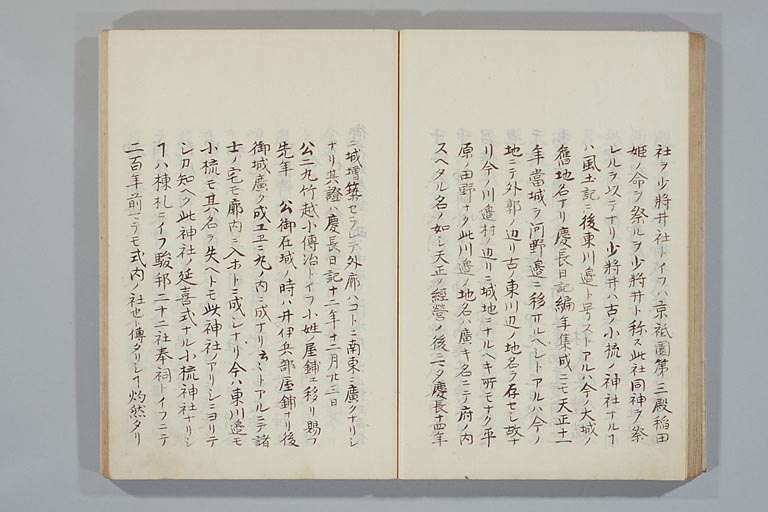 社ヲ少將井社トイフハ京祇園第三殿稲田
姫ノ命ヲ祭ルヲ少將井ト称ス此社同神ヲ祭
レルヲ以テナリ少將井ハ古ノ小梳ノ神社ナルヿ
ハ風土記ニ後東川邉ト号ストアルハ今ノ大城ノ
舊地名ナリ慶長日記編年集成ニモ天正十一
年當城ヲ河野邉ニ移サルヘシトアルハ今ノ
地ニテ外郭ノ辺リ古ノ東川辺ノ地名ヲ存セシ故ナ
リ今ノ川邉村ノ辺リニ城地ニナルヘキ所モナク平
原ノ田野ナク此川邉ノ地名ハ廣キ名ニテ府ノ内
スヘタル名ノ如シ天正ノ經營ノ後ニタ慶長十四年
ニ城増築セラレテ外廓ハコトニ南東ニ廣クナリシ
ナリ其證ハ慶長日記十二年十二月廿三日
公二九竹越小傳冶トイフ小姓ノ屋鋪エ移リ賜フ
先年 公御在城ノ時ハ井伊兵部屋鋪ナリ後
御城廣ク成エ二九ノ内ニ成ナリ云ミトアルニテ諸
士ノ宅モ廓内ニ入ホトニ成シナリ今ハ東川邉モ
小梳モ其名ヲ失ヘトモ此神社ノアリシニヨリテ
シカ知ヘク此神社ノ延喜式ナル小梳神社ナリシ
ヿハ棟札ニイフ駿邦二十二社奉祠トイフニテ
二百年前マテモ式内ノ社也ト傳タリシヿ灼然タリ